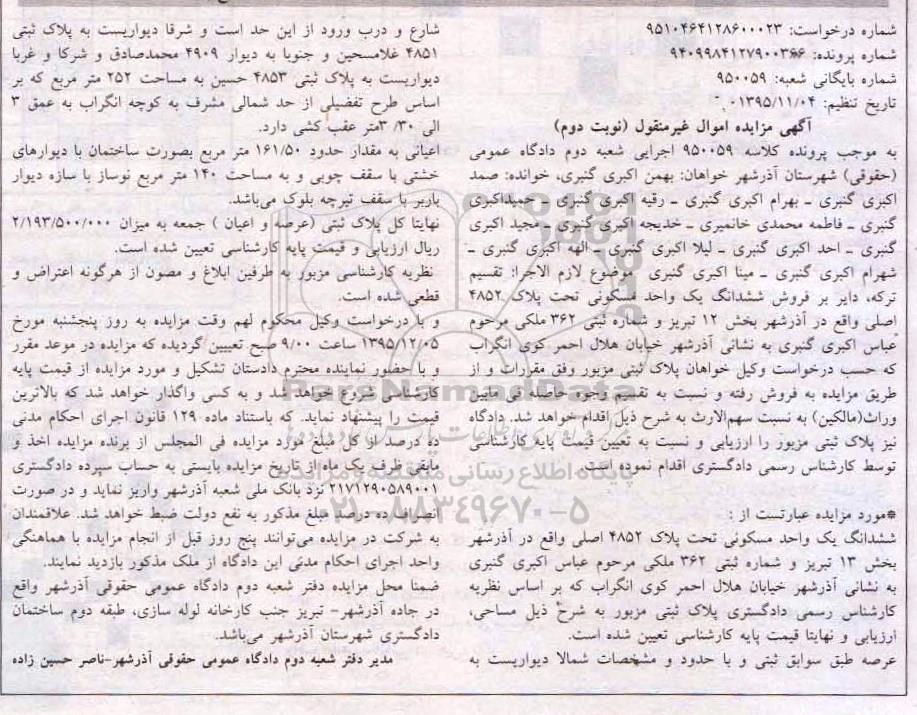 شماره درخواست: ۹۵۱۰۴۶۴۱۲۸۶۰۰۰۲۳
شماره پرونده: ۹۴۰۹۹۸۴۱۲۷۹۰۰۳۶۶
شماره بایگانی شعبه: ۹۵۰۰۵۹
تاریخ تنظیم: ۱۳۹۵/۱۱/۰۴
آگهی مزایده اموال غیرمنقول (نوبت دوم)
به موجب پرونده کلاسه ۹۵۰۰۵۹ اجرایی شعبه دوم دادگاه عمومی
(حقوقی) شهرستان آذرشهر خواهان: بهمن اکبری گنبری، خوانده: صمد
اکبری گنبری ـ بهرام اکبری گنبری ـ رقیه اکبری گنبری ـ حمیداکبری
گنبری ـ فاطمه محمدی خانمیری ـ خدیجه اکبری گنبری ـ مجید اکبری
گنبری ـ احد اکبری گنبری ـ لیلا اکبری گنبری ـ الهه اکبری گنبری ـ
شهرام اکبری گنبری ـ مینا اکبری گنبری موضوع لازم الاجرا: تقسیم
ترکه، دایر بر فروش ششدانگ یک واحد مسکونی تحت پلاک ۴۸۵۲
اصلی واقع در آذرشهر بخش ۱۲ تبریز و شماره ثبتی ۳۶۲ ملکی مرحوم
عباس اکبری گنبری به نشانی آذرشهر خیابان هلال احمر کوی انگراب
که حسب درخواست وکیل خواهان پلاک ثبتی مزبور وفق مقررات و از
طریق مزایده به فروش رفته و نسبت به تقسیم وجوه حاصله فی مابین
وراث(مالکین) به نسبت سهم‌الارث به شرح ذیل اقدام خواهد شد. دادگاه
نیز پلاک ثبتی مزبور را ارزیابی و نسبت به تعیین قیمت پایه کارشناسی
توسط کارشناس رسمی دادگستری اقدام نموده است.
*مورد مزایده عبارتست از :
ششدانگ یک واحد مسکونی تحت پلاک ۴۸۵۲ اصلی واقع در آذرشهر
بخش ۱۳ تبریز و شماره ثبتی ۳۶۲ ملکی مرحوم عباس اکبری گنبری
به نشانی آذرشهر خیابان هلال احمر کوی انگراب که بر اساس نظریه
کارشناس رسمی دادگستری پلاک ثبتی مزبور به شرح ذیل مساحی،
ارزیابی و نهایتا قیمت پایه کارشناسی تعیین شده است.
عرصه طبق سوابق ثبتی و با حدود و مشخصات شمالا دیواریست به
شارع و درب ورود از این حد است و شرقا دیواریست به پلاک ثبتی
۴۸۵۱ غلامحسین و جنوبا به دیوار ۴۹۰۹ محمدصادق و شرکا و غربا
دیواریست به پلاک ثبتی ۴۸۵۳ حسین به مساحت ۲۵۲ متر مربع که بر
اساس طرح تفضیلی از حد شمالی مشرف به کوچه انگراب به عمق ۳
الی ۳/۳۰متر عقب کشی دارد.
اعیانی به مقدار حدود ۱۶۱/۵۰ متر مربع بصورت ساختمان با دیوارهای
خشتی با سقف چوبی و به مساحت ۱۴۰ متر مربع نوساز با سازه دیوار
باربر با سقف تیرچه بلوک می‌باشد.
نهایتا کل پلاک ثبتی (عرصه و اعیان ) جمعه به میزان ۲/۱۹۳/۵۰۰/۰۰۰
ریال ارزیابی و قیمت پایه کارشناسی تعیین شده است.
نظریه کارشناسی مزبور به طرفین ابلاغ و مصون از هرگونه اعتراض و
قطعی شده است.
و با درخواست وکیل محکوم لهم وقت مزایده به روز پنجشنبه مورخ
۱۳۹۵/۱۲/۰۵ ساعت ۹/۰۰ صبح تعییین گردیده که مزایده در موعد مقرر
و با حضور نماینده محترم دادستان تشکیل و مورد مزایده از قیمت پایه
کارشناسی شروع خواهد شد و به کسی واگذار خواهد شد که بالاترین
قیمت را پیشنهاد نماید. که باستناد ماده ۱۲۹ قانون اجرای احکام مدنی
ده درصد از کل مبلغ مورد مزایده فی المجلس از برنده مزایده اخذ و
مابقی ظرف یک ماه از تاریخ مزایده بایستی به حساب سپرده دادگستری
۲۱۷۱۲۹۰۵۸۹۰۰۱ نزد بانک ملی شعبه آذرشهر واریز نماید و در صورت
انصراف ده درصد مبلغ مذکور به نفع دولت ضبط خواهد شد. علاقمندان
به شرکت در مزایده می‌توانند پنج روز قبل از انجام مزایده با هماهنگی
واحد اجرای احکام مدنی این دادگاه از ملک مذکور بازدید نمایند.
ضمنا محل مزایده دفتر شعبه دوم دادگاه عمومی حقوقی آذرشهر واقع
در جاده آذرشهر- تبریز جنب کارخانه لوله سازی، طبقه دوم ساختمان
دادگستری شهرستان آذرشهر می‌باشد.
مدیر دفتر شعبه دوم دادگاه عمومی حقوقی آذرشهر-ناصر حسین زاده
ParsNamadData
پایگاه اطلاع رسانی مناقصه و مزایده
۰۲۱-۸۸۳۴۹۶۷۰-۵